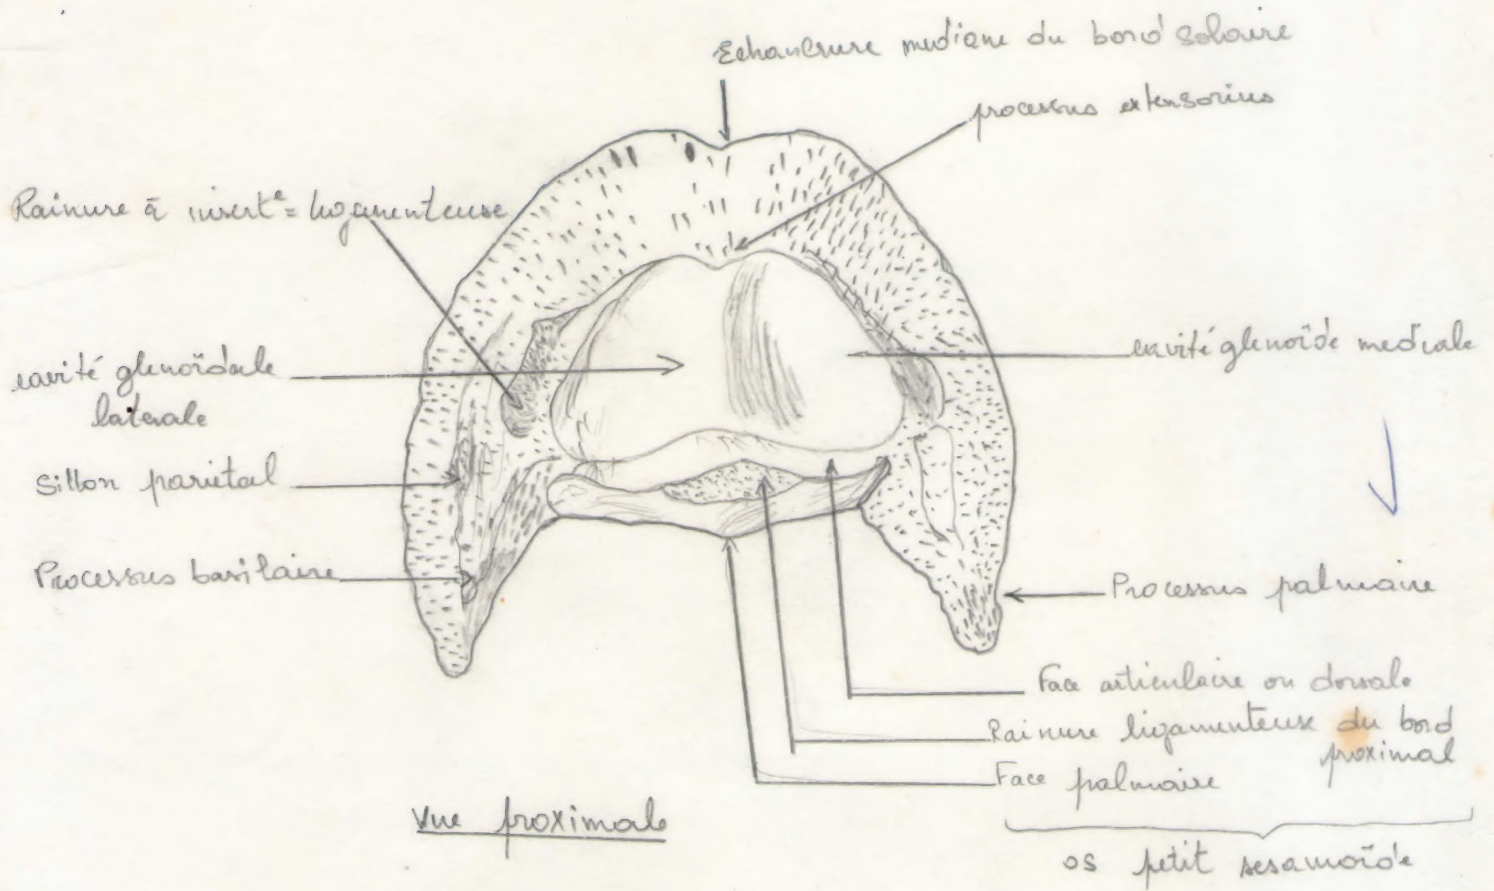 Echancrure mediane du bord solaire
processus extensorius
Rainure à insert° = ligamenteuse
cavité glenoïdale
laterale
cavité glenoïde mediale
Sillon parietal
Processus basilaire
Processus palmaire
Face articulaire ou dorsale
Rainure ligamenteuse du bord
proximal
Face palmaire
Vue proximale
os petit sesamoïde